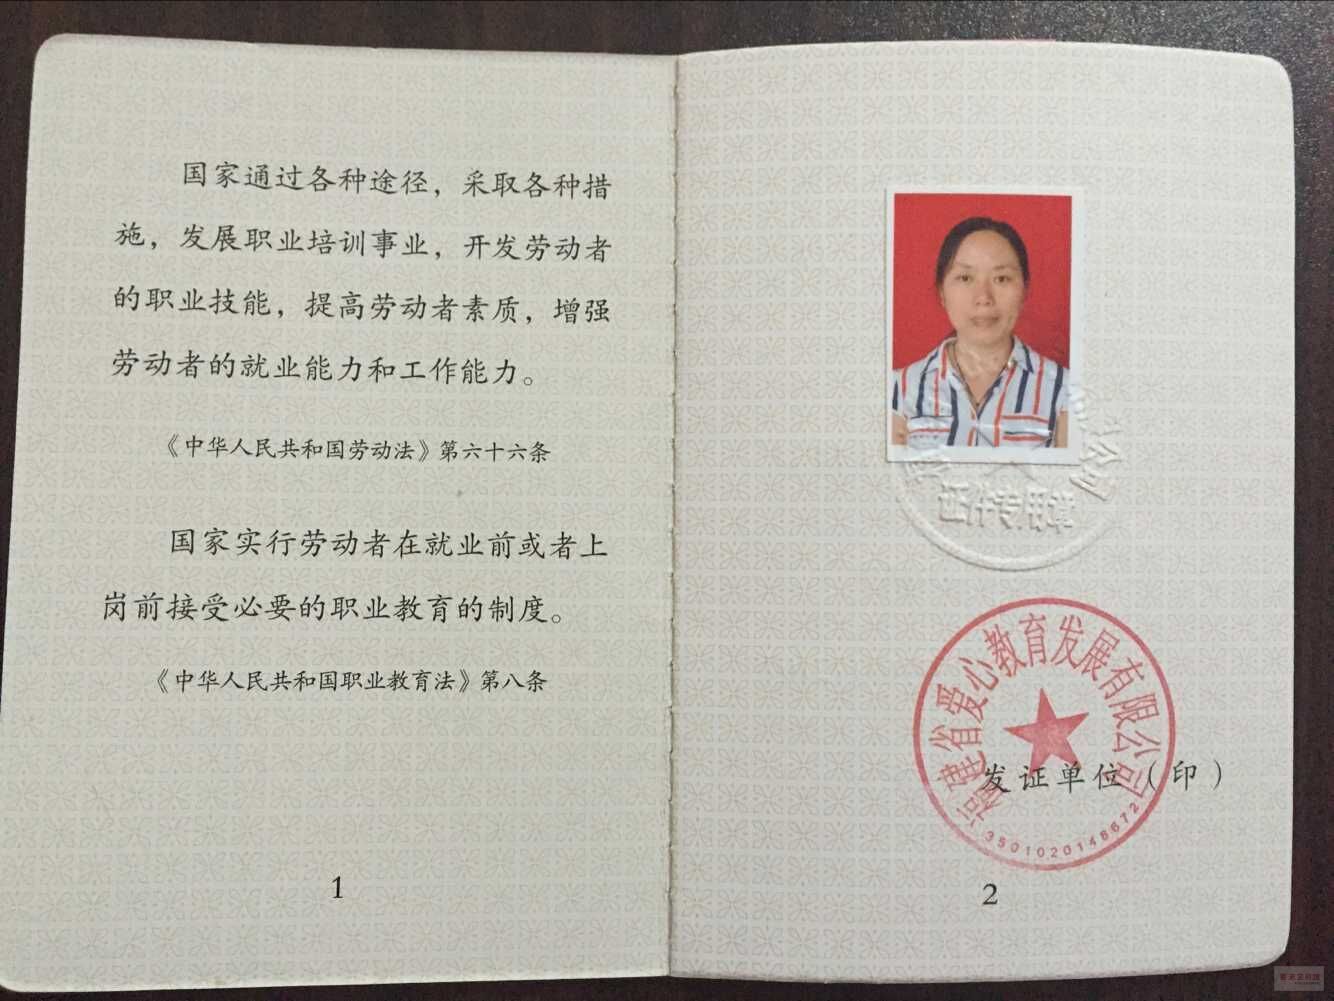 国家通过各种途径，采取各种措
施，发展职业培训事业，开发劳动者
的职业技能，提高劳动者素质，增强
劳动者的就业能力和工作能力。
《中华人民共和国劳动法》第六十六条
国家实行劳动者在就业前或者上
岗前接受必要的职业教育的制度。
《中华人民共和国职业教育法》第八条
1
证件专用章
福建省爱心教育发展有限公司
发证单位（印）
3501020148672
2